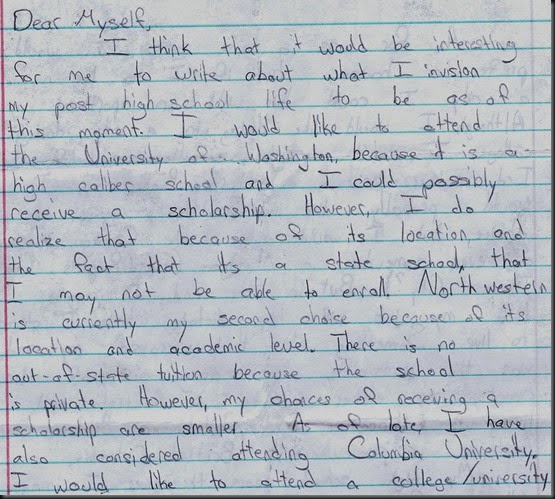 Dear Myself,
I think that it would be interesting
for me to write about what I invision
my post high school life to be as of
this moment. I would like to attend
the University of Washington, because it is a
high caliber school and I could possbly
receive a scholarship. However, I do
realize that because of its location and
the fact that its a state school, that
I may not be able to enroll. Northwestern
is currently my second choice because of its
location and academic level. There is no
out-of-state tuition because the school
is private. However, my chances of receiving a
scholarship are smaller. As of late, I have
also considered attending Columbia University.
I would like to attend a college/university